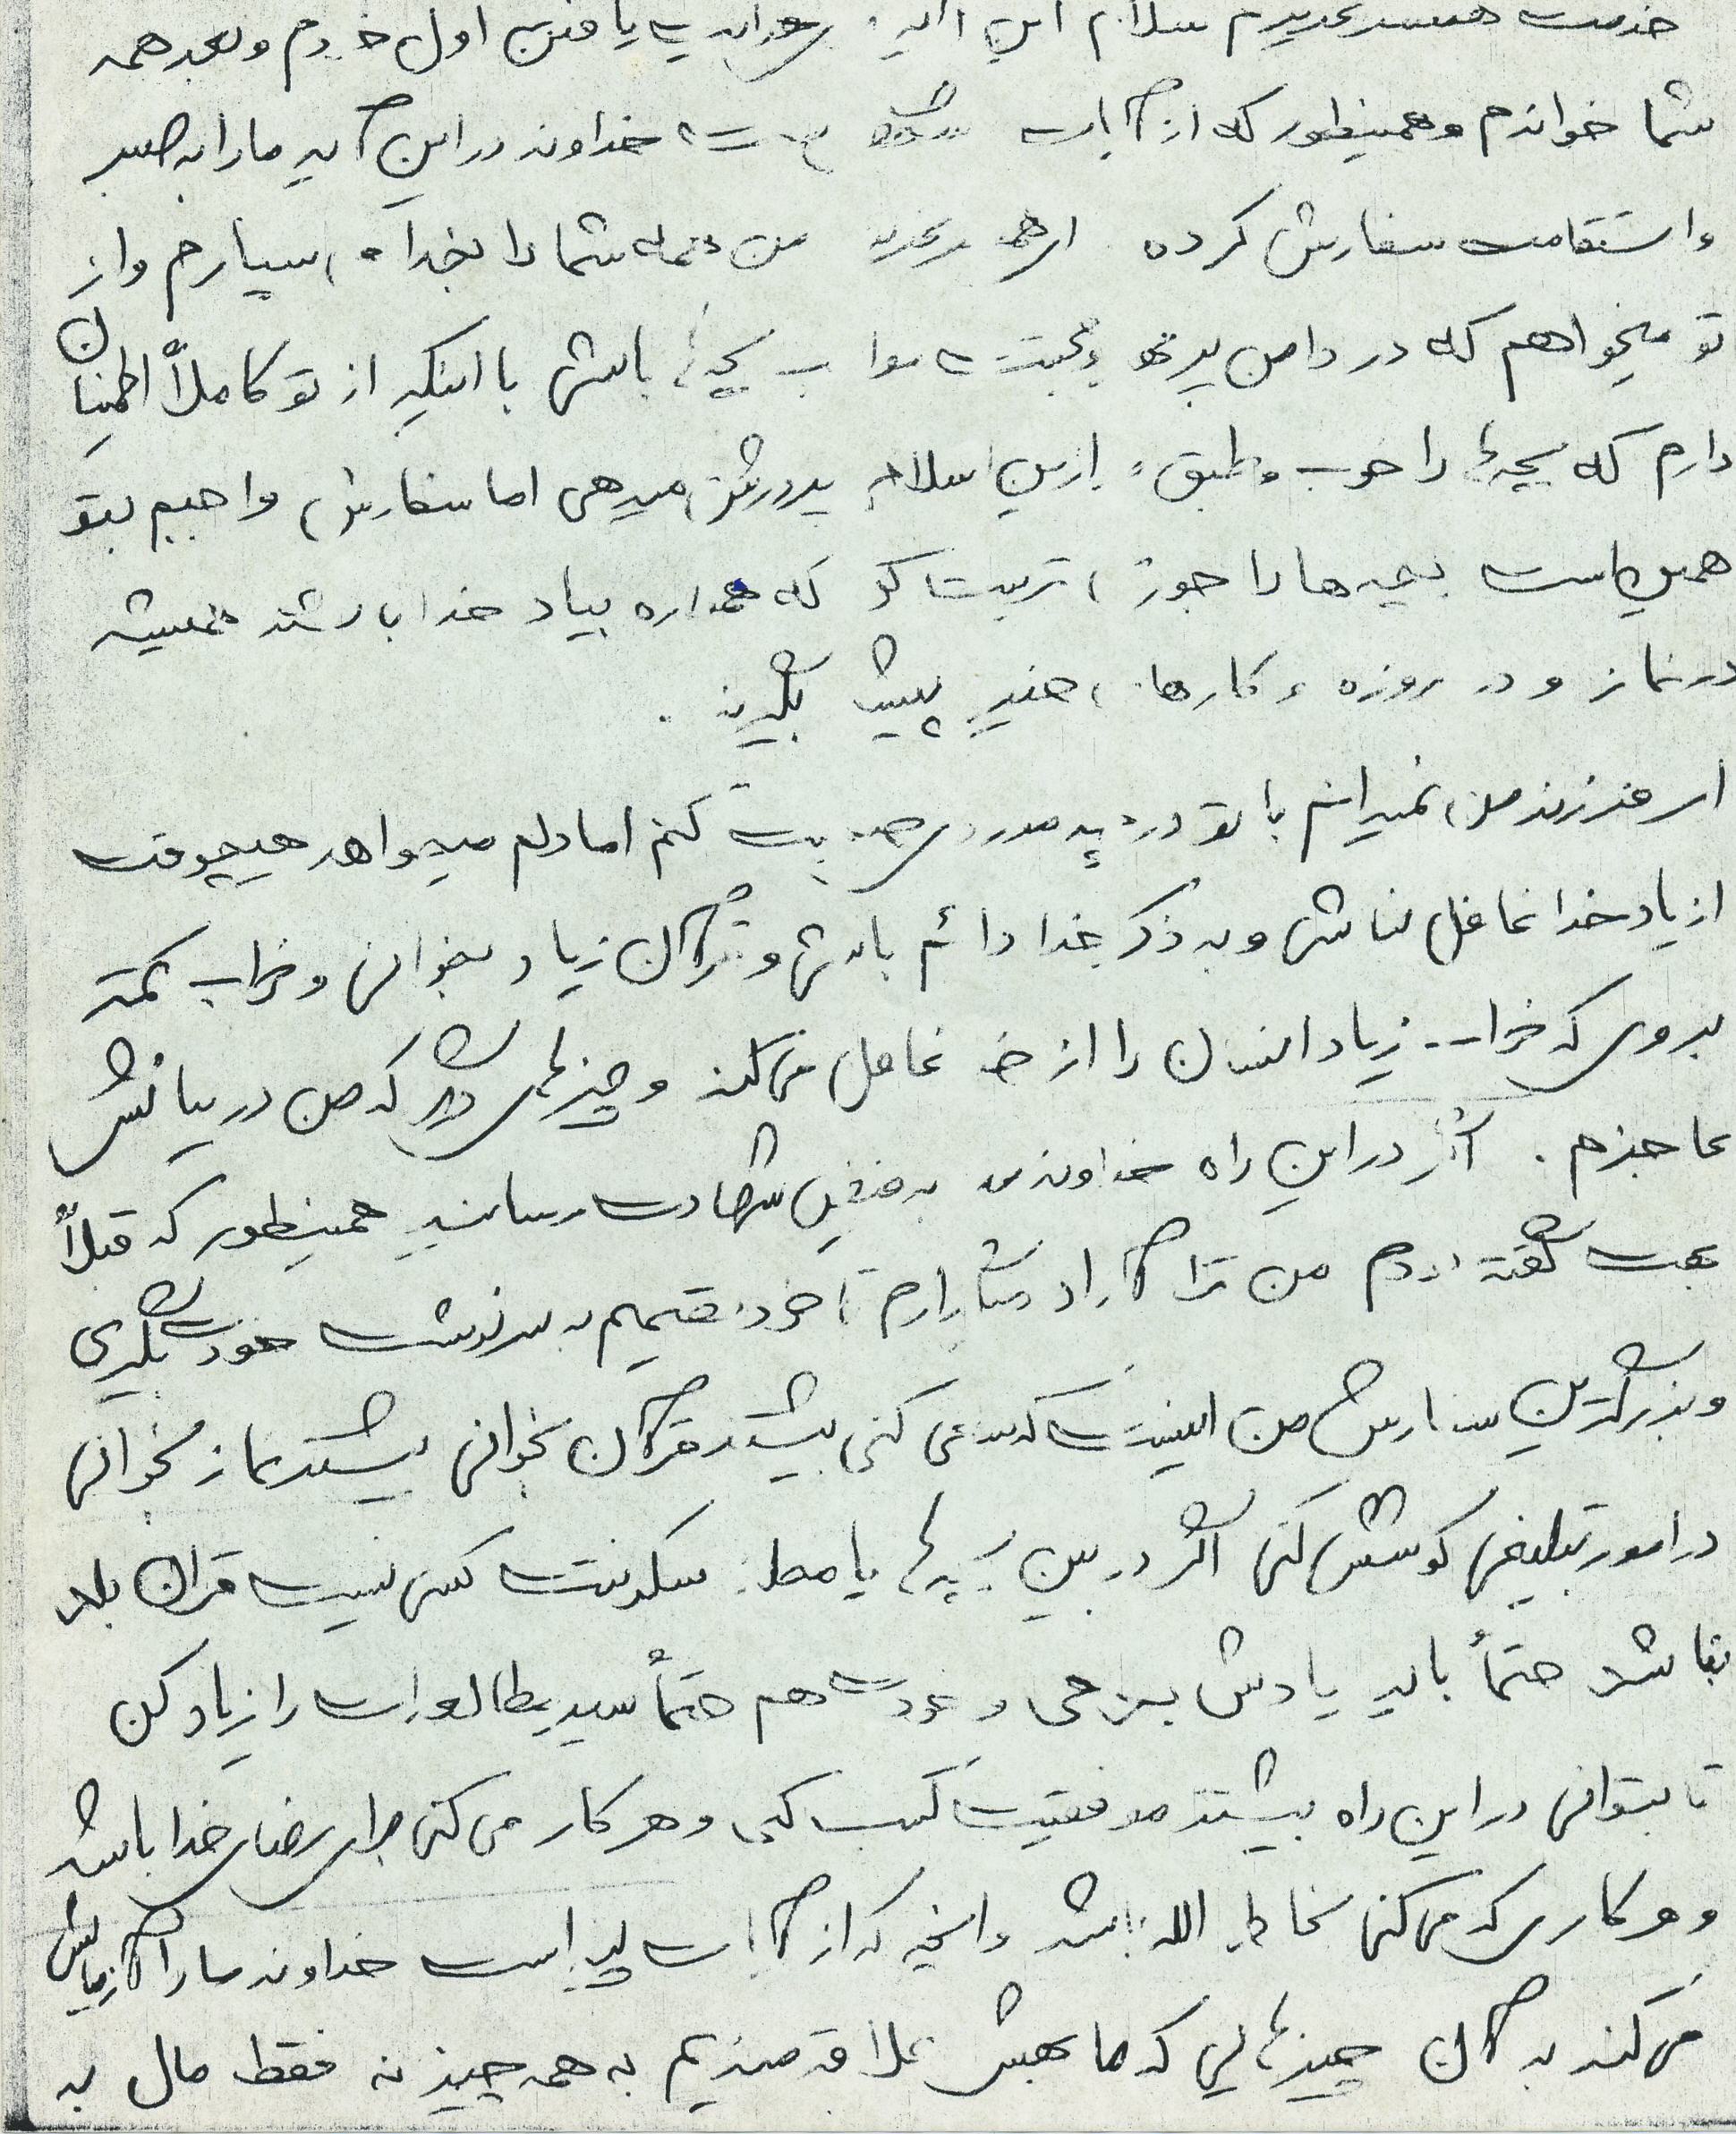 خدمت همسر عزیزم سلام این آیه را برای یافتن اول خودم و بعد همه
شما خواندم و همینطور که از آیات خداوند در این آیه ما را به صبر
و استقامت سفارش کرده من همه شما را بخدا میسپارم و از
تو میخواهم که در دامن پر مهر و محبتت مواظب بچه‌ها باش با اینکه از تو کاملاً اطمینان
دارم که بچه‌ها را خوب و طبق موازین اسلام پرورش میدهی اما سفارش واجبم بتو
همین است بچه‌ها را جوری تربیت کن که همواره بیاد خدا باشند همیشه
در نماز و در روزه و کارهای خیر پیشی بگیرند .
ای فرزند من نمیدانم با تو در چه مورد صحبت کنم اما دلم میخواهد هیچوقت
از یاد خدا غافل نباشی و به ذکر خدا دائم باشی و قرآن زیاد بخوانی و خواب کمتر
بروی که خواب زیاد انسان را از خدا غافل می‌کند و چیزهای دیگر که من در بیانش
عاجزم . اگر در این راه خداوند مرا به فیض شهادت رسانید همینطور که قبلاً
بهت گفته بودم من ترا آزاد میگذارم تا خود تصمیم به سرنوشت خودت بگیری
و بزرگترین سفارش من اینست که سعی کنی بیشتر قرآن بخوانی بیشتر نماز بخوانی
در امور تبلیغی کوشش کنی اگر در بین بچه‌ها یا محل سکونتت کسی نیست قرآن بلد
نباشد حتماً باید یادش بدهی و خودت هم حتماً سیر مطالعه‌ات را زیاد کن
تا بتوانی در این راه بیشتر موفقیت کسب کنی و هر کار می‌کنی برای رضای خدا باشد
و هر کاری که می‌کنی بخاطر الله باشد و آنچه که از آیات پیداست خداوند ما را آزمایش
می‌کند به آن چیزهایی که ما بهش علاقه‌مندیم به همه چیز نه فقط مال به